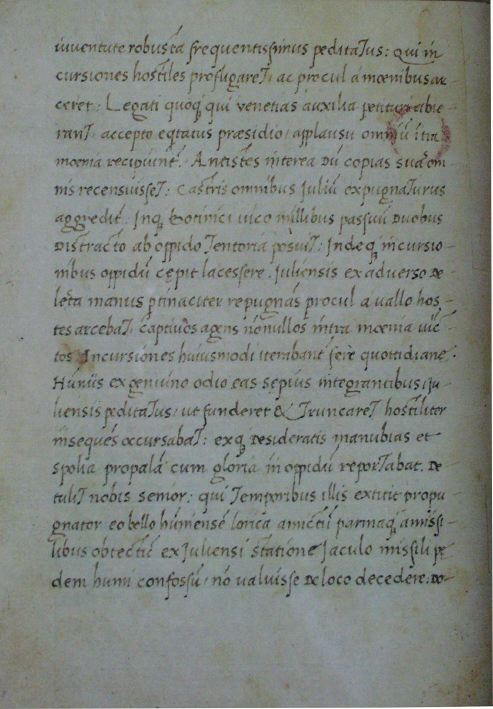 iuventute robusta frequentissimus peditatus: Qui in
cursiones hostiles profugaret, ac procul a moenibus ar
ceret: Legati quoq, qui venetias auxilia petituri abie
rant, accepto eqtatus præsidio, applausu omniū itra
moenia recipiunt. Antistes interea Dū copias suas om
nis recensuisset: Castris omnibus Juliū expugnaturus
aggredit. Inq Gotinici vico millibus passuū duobus
distracto ab oppido Tentoria posuit: Indeq incursio
nibus oppidū cepit lacessere. Juliensis ex adverso De
lecta manus ptinaciter repugnās procul a vallo hos
tes arcebat, captivos agens nōnullos intra moenia vic
tos. Incursiones huiusmodi iterabant fere quotidiane.
Hunūs ex genuino odio eas sepius integrantibus, Ju
liensis peditatus, ut funderet & Truncaret hostiliter
insequēs occursabat: exq Desideratis manubias et
spolia propalā cum gloria in oppidū reportabat. De
tulit nobis senior: qui Temporibus illis extitit propu
gnator eo bello humense lorica amictū parmaq amissi
libus obtectū ex Juliensi statione Jaculo missili pe
dem humi confossū, nō valuisse De loco decedere. Do